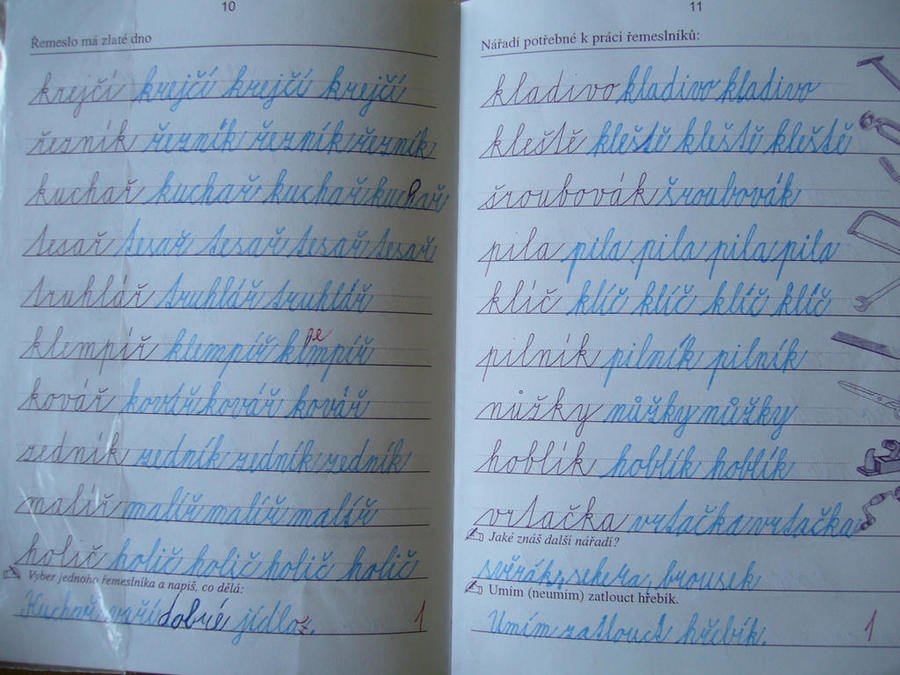 10
Řemeslo má zlaté dno
krejčí krejčí krejčí krejčí
řezník řezník řezník řezník
kuchař kuchař kuchař kuchař
tesař tesař tesař tesař tesař
truhlář truhlář truhlář
klempíř klempíř klmpíř
pe
kovář kovář kovář kovář
zedník zedník zedník zedník
malíř malíř malíř malíř
holič holič holič holič holič
Vyber jednoho řemeslníka a napiš, co dělá:
Kuchař vaří dobré jídlo. 1
11
Nářadí potřebné k práci řemeslníků:
kladivo kladivo kladivo
kleště kleště kleště kleště
šroubovák šroubovák
pila pila pila pila pila
klíč klíč klíč klíč klíč
pilník pilník pilník
nůžky nůžky nůžky
hoblík hoblík hoblík
vrtačka vrtačka vrtačka
Jaké znáš další nářadí?
svěrák, sekera, brousek
Umím (neumím) zatlouct hřebík.
Umím zatlouct hřebík. 1